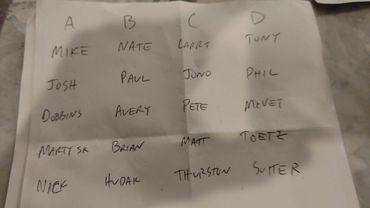 A B C D
MIKE NATE LARRY TONY
JOSH PAUL JONO PHIL
DOBBINS AVERY PETE
MARTY SR BRIAN MATT TOETZ
NICK HUDAK THURSTON SUITER